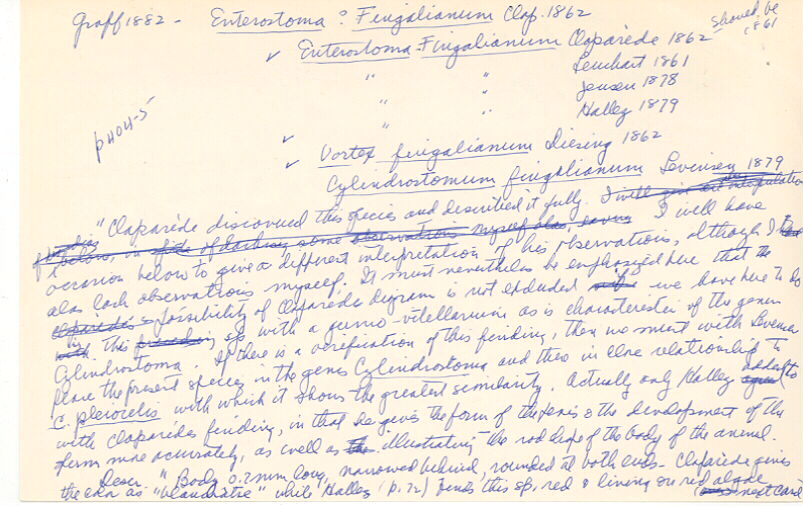 Graff 1882 - Enterostoma ? Fingalianum Clap. 1862
should be 1861
✓ Enterostoma Fingalianum Claparède 1862
" " Leuchart 1861
" " Jensen 1878
" " Hallez 1879
p 404-5
✓ Vortex fingalianum Diesing 1862
✓ Cylindrostomum fingalianum Levinsen 1879
"Claparède discovered this species and described it fully. I well
below, in of darling some observations myself also, I will have
occasion below to give a different interpretation of his observations, although I
alas lack observations myself. It must nevertheless be emphasized here that the
Claparède's possibility of Claparède diagram is not excluded we have here to do
with this sp. with a germo-vitellarium as is characteristic of the genus
Cylindrostoma. If there is a verification of this finding, then we must with Levinsen
place the present species in the genus Cylindrostoma and there in close relationship to
C. pleiocelis with which it shows the greatest similarity. Actually only Hallez added to
with Claparèdes finding, in that he gives the form of the penis & the development of the
sperm more accurately, as well as illustrating the rod shape of the body of the animal.
Descr. "Body 0.2mm long, narrowed behind, rounded at both ends - Claparède gives
the color as "blanchâtre" while Hallez (p. 72) finds this sp. red & living on red algae
(next card)